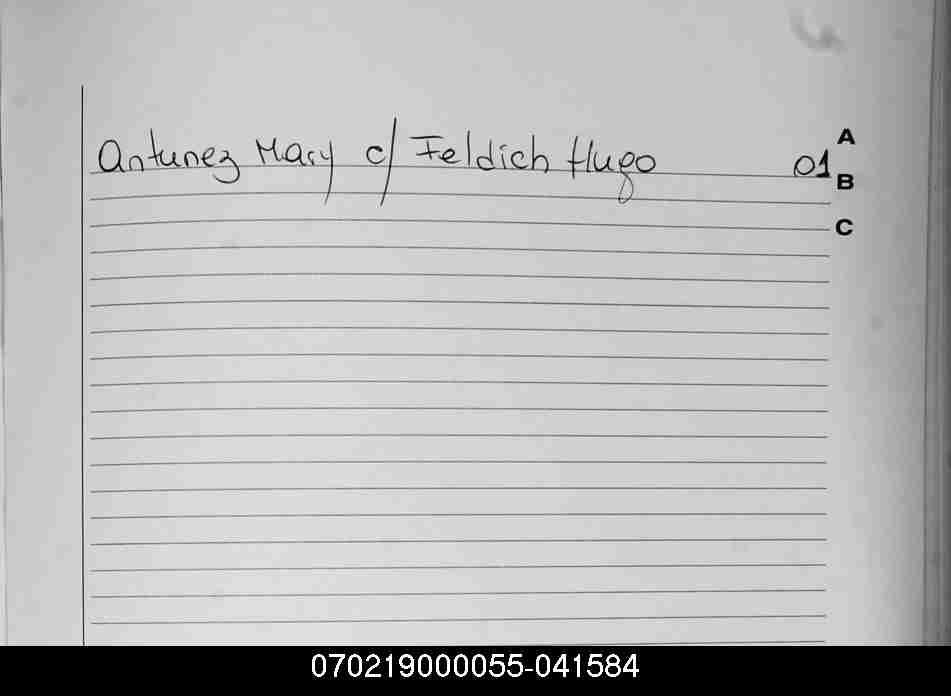 Antunez Mary c/ Feldich Hugo 01
A
B
C
070219000055-041584